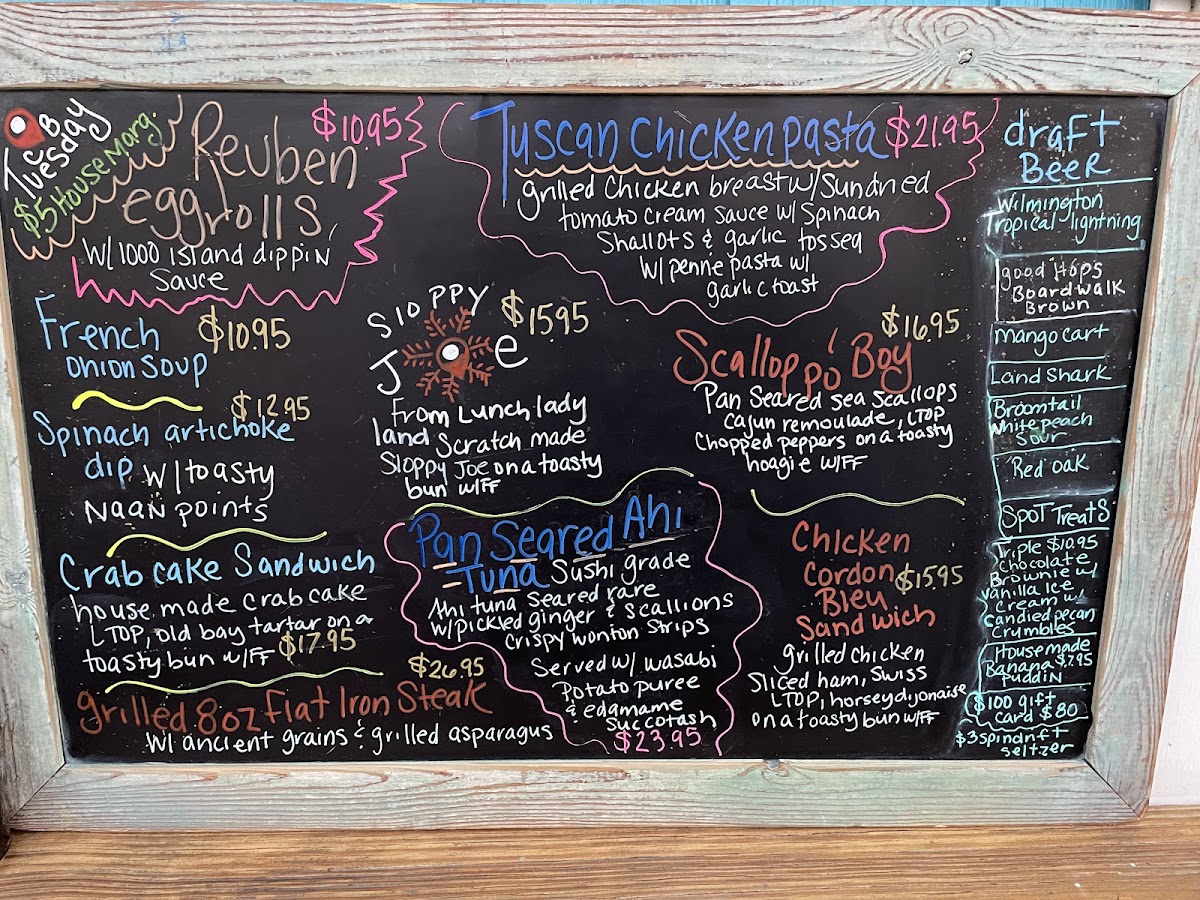 Tuesday
CB
$5 House Marg.
Reuben
eggrolls
$10.95
W/ 1000 island dippin
Sauce
French
onion soup
$10.95
Spinach artichoke
$12.95
dip w/ toasty
Naan points
Crab cake Sandwich
house made crab cake
LTOP, old bay tartar on a
toasty bun w/FF $17.95
grilled 8oz Flat Iron Steak
$26.95
W/ ancient grains & grilled asparagus
Tuscan Chicken pasta $21.95
grilled chicken breast w/ Sundried
tomato cream sauce w/ Spinach
Shallots & garlic tossed
w/ penne pasta w/
garlic toast
Sloppy
Joe
$15.95
From Lunch lady
land Scratch made
Sloppy Joe on a toasty
bun w/FF
Scallop po' Boy
$16.95
Pan Seared sea scallops
cajun remoulade, LTOP
Chopped peppers on a toasty
hoagie w/FF
Pan Seared Ahi
Tuna Sushi grade
Ahi tuna seared rare
w/ pickled ginger & scallions
crispy wonton strips
Served w/ wasabi
Potato puree
& edamame
Succotash
$23.95
Chicken
Cordon $15.95
Bleu
Sandwich
grilled chicken
Sliced ham, Swiss
LTOP, horsey dijonaise
on a toasty bun w/FF
draft
Beer
Wilmington
Tropical lightning
good Hops
Boardwalk
Brown
Mango cart
Land Shark
Broomtail
white peach
Sour
Red oak
Spot Treats
Triple $10.95
Chocolate
Brownie w/
vanilla Ice
Cream w/
candied pecan
Crumbles
House made
Banana $7.95
Puddin
$100 gift
card $80
$3 spindrift
seltzer